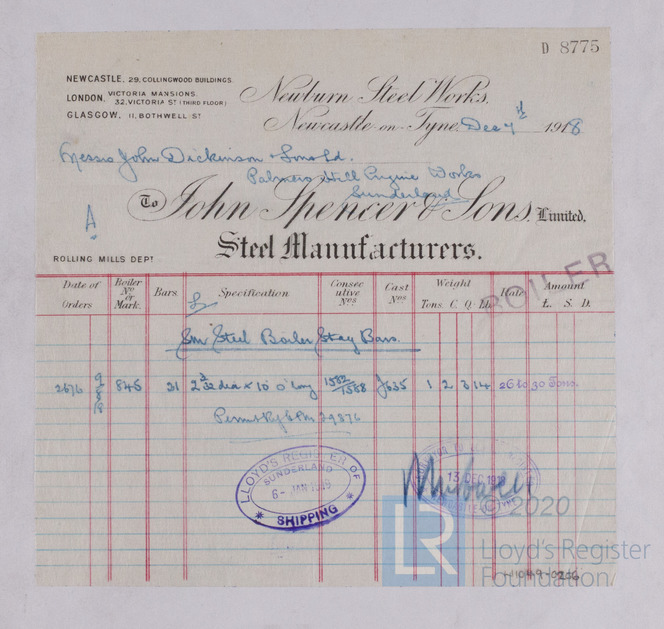 D 8775
NEWCASTLE, 29, COLLINGWOOD BUILDINGS.
LONDON, VICTORIA MANSIONS,
32, VICTORIA ST (THIRD FLOOR)
GLASGOW, 11, BOTHWELL ST
Newburn Steel Works,
Newcastle-on-Tyne, Dec 7th 1918
Messrs John Dickinson & Sons Ld.
Palmers Hill Engine Works
Sunderland
A
To John Spencer & Sons, Limited,
Steel Manufacturers.
ROLLING MILLS DEPT
BOILER
Date of Orders Boiler No or Mark. Bars. Specification Consecutive Nos Cast Nos Weight Tons. C. Q. Lb. Rate Amount £. S. D.
Sm Steel Boiler Stay Bars.
2676 846 31 dia x 10' 0" long 1582/1588 J635 1 2 3 14 26 to 30 Tons.
Permit 29876
LLOYD'S REGISTER OF
SUNDERLAND
6- JAN 1919
* SHIPPING *
13 DEC 191
© 2020
LR
Lloyd's Register
Foundation